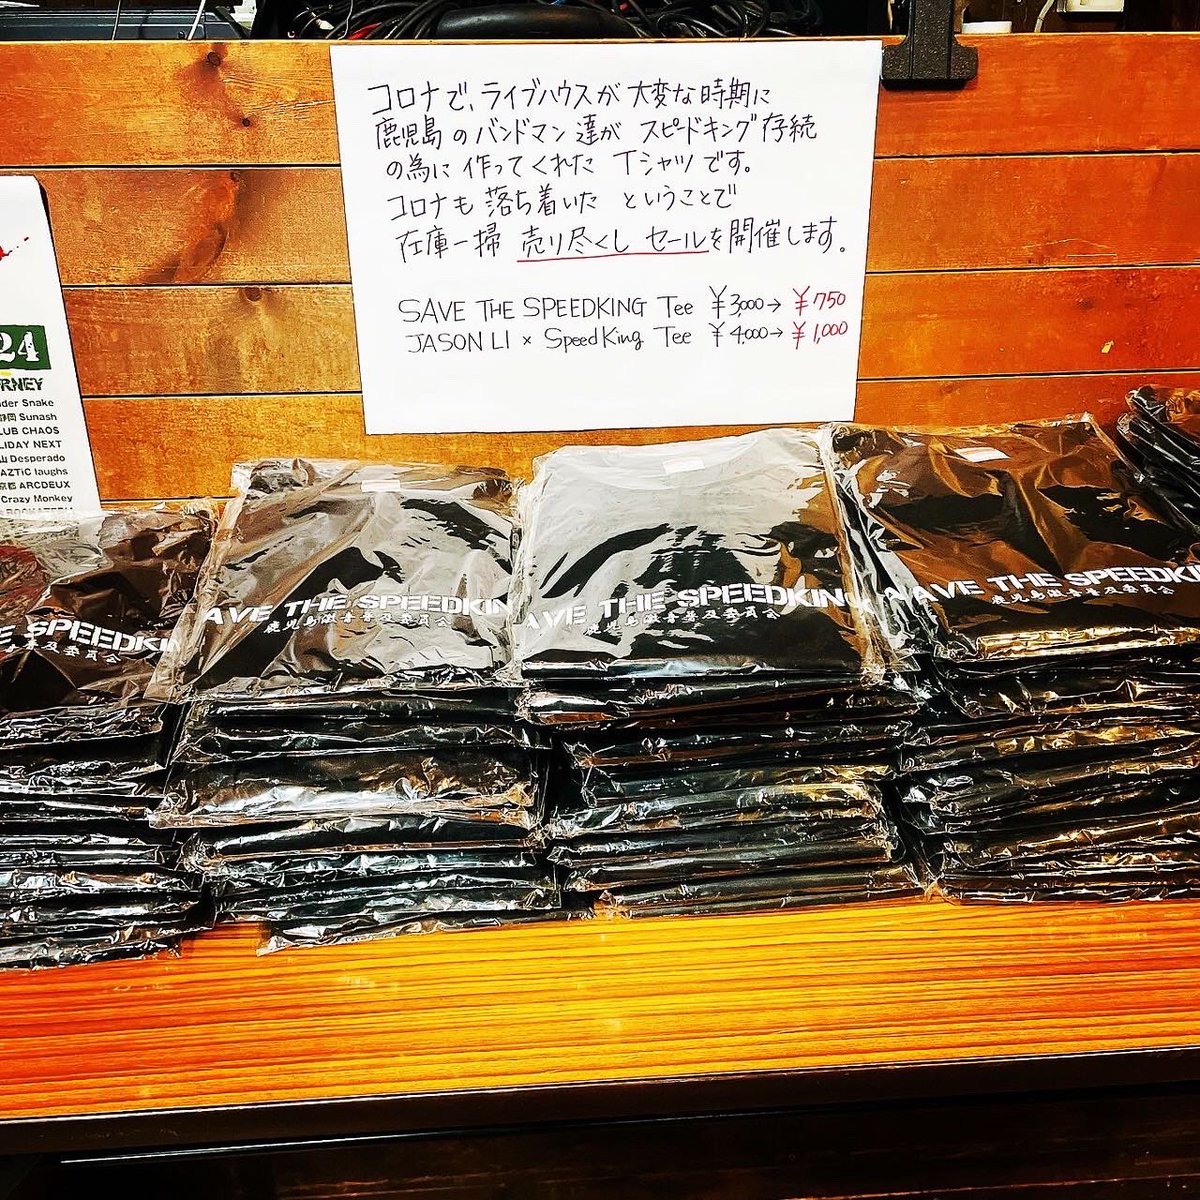 コロナで、ライブハウスが大変な時期に
鹿児島のバンドマン達がスピードキング存続
の為に作ってくれたTシャツです。
コロナも落ち着いたということで
在庫一掃 売り尽くしセールを開催します。
SAVE THE SPEEDKING Tee ¥3,000→¥750
JASON LI × SpeedKing Tee ¥4,000→¥1,000
24
RNEY
der Snake
静岡 Sunash
LUB CHAOS
LIDAY NEXT
山 Desperado
AZTiC laughs
京都 ARCDEUX
Crazy Monkey
E SPEEDKIN
普及委員会
AVE THE SPEEDKIN
鹿児島激音普及委員会
AVE THE SPEEDKING
鹿児島激音普及委員会
AVE THE SPEEDKI
鹿児島激音普及委員会